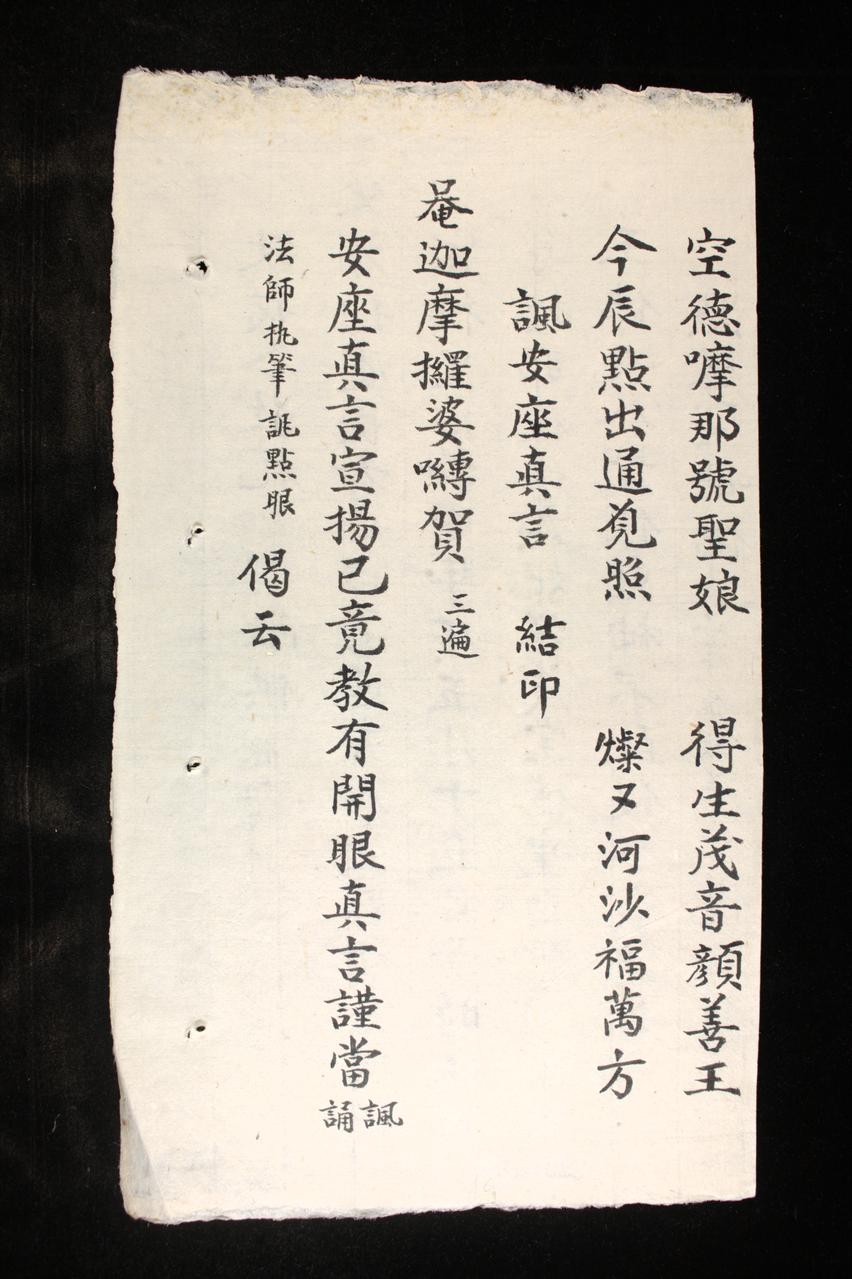 空德嚤那號聖娘　得生茂音顏善王
今辰點出通光照　燦又河沙福萬方
諷安座真言　結印
唵迦摩攞婆囀賀　三遍
安座真言宣揚已竟教有開眼真言謹當諷誦
法師执筆誂點眼　偈云